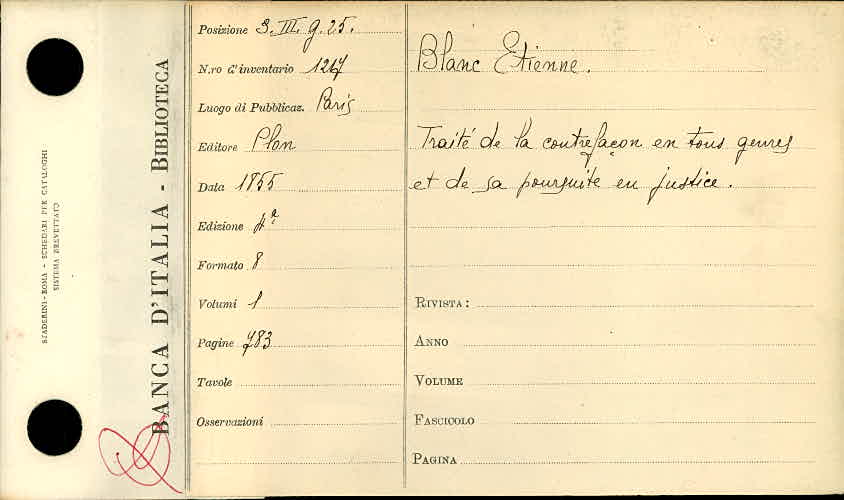 STADERINI - ROMA - SCHEDARI PER CATALOGHI
SISTEMA BREVETTATO
BANCA D'ITALIA - BIBLIOTECA
Posizione S. III. g. 25.
N.ro d'inventario 1217
Luogo di Pubblicaz. Paris
Editore Plon
Data 1855
Edizione 4ª
Formato 8
Volumi 1
Pagine 783
Tavole
Osservazioni
Blanc Etienne.
Traité de la contrefaçon en tous genres
et de sa poursuite en justice.
RIVISTA:
ANNO
VOLUME
FASCICOLO
PAGINA